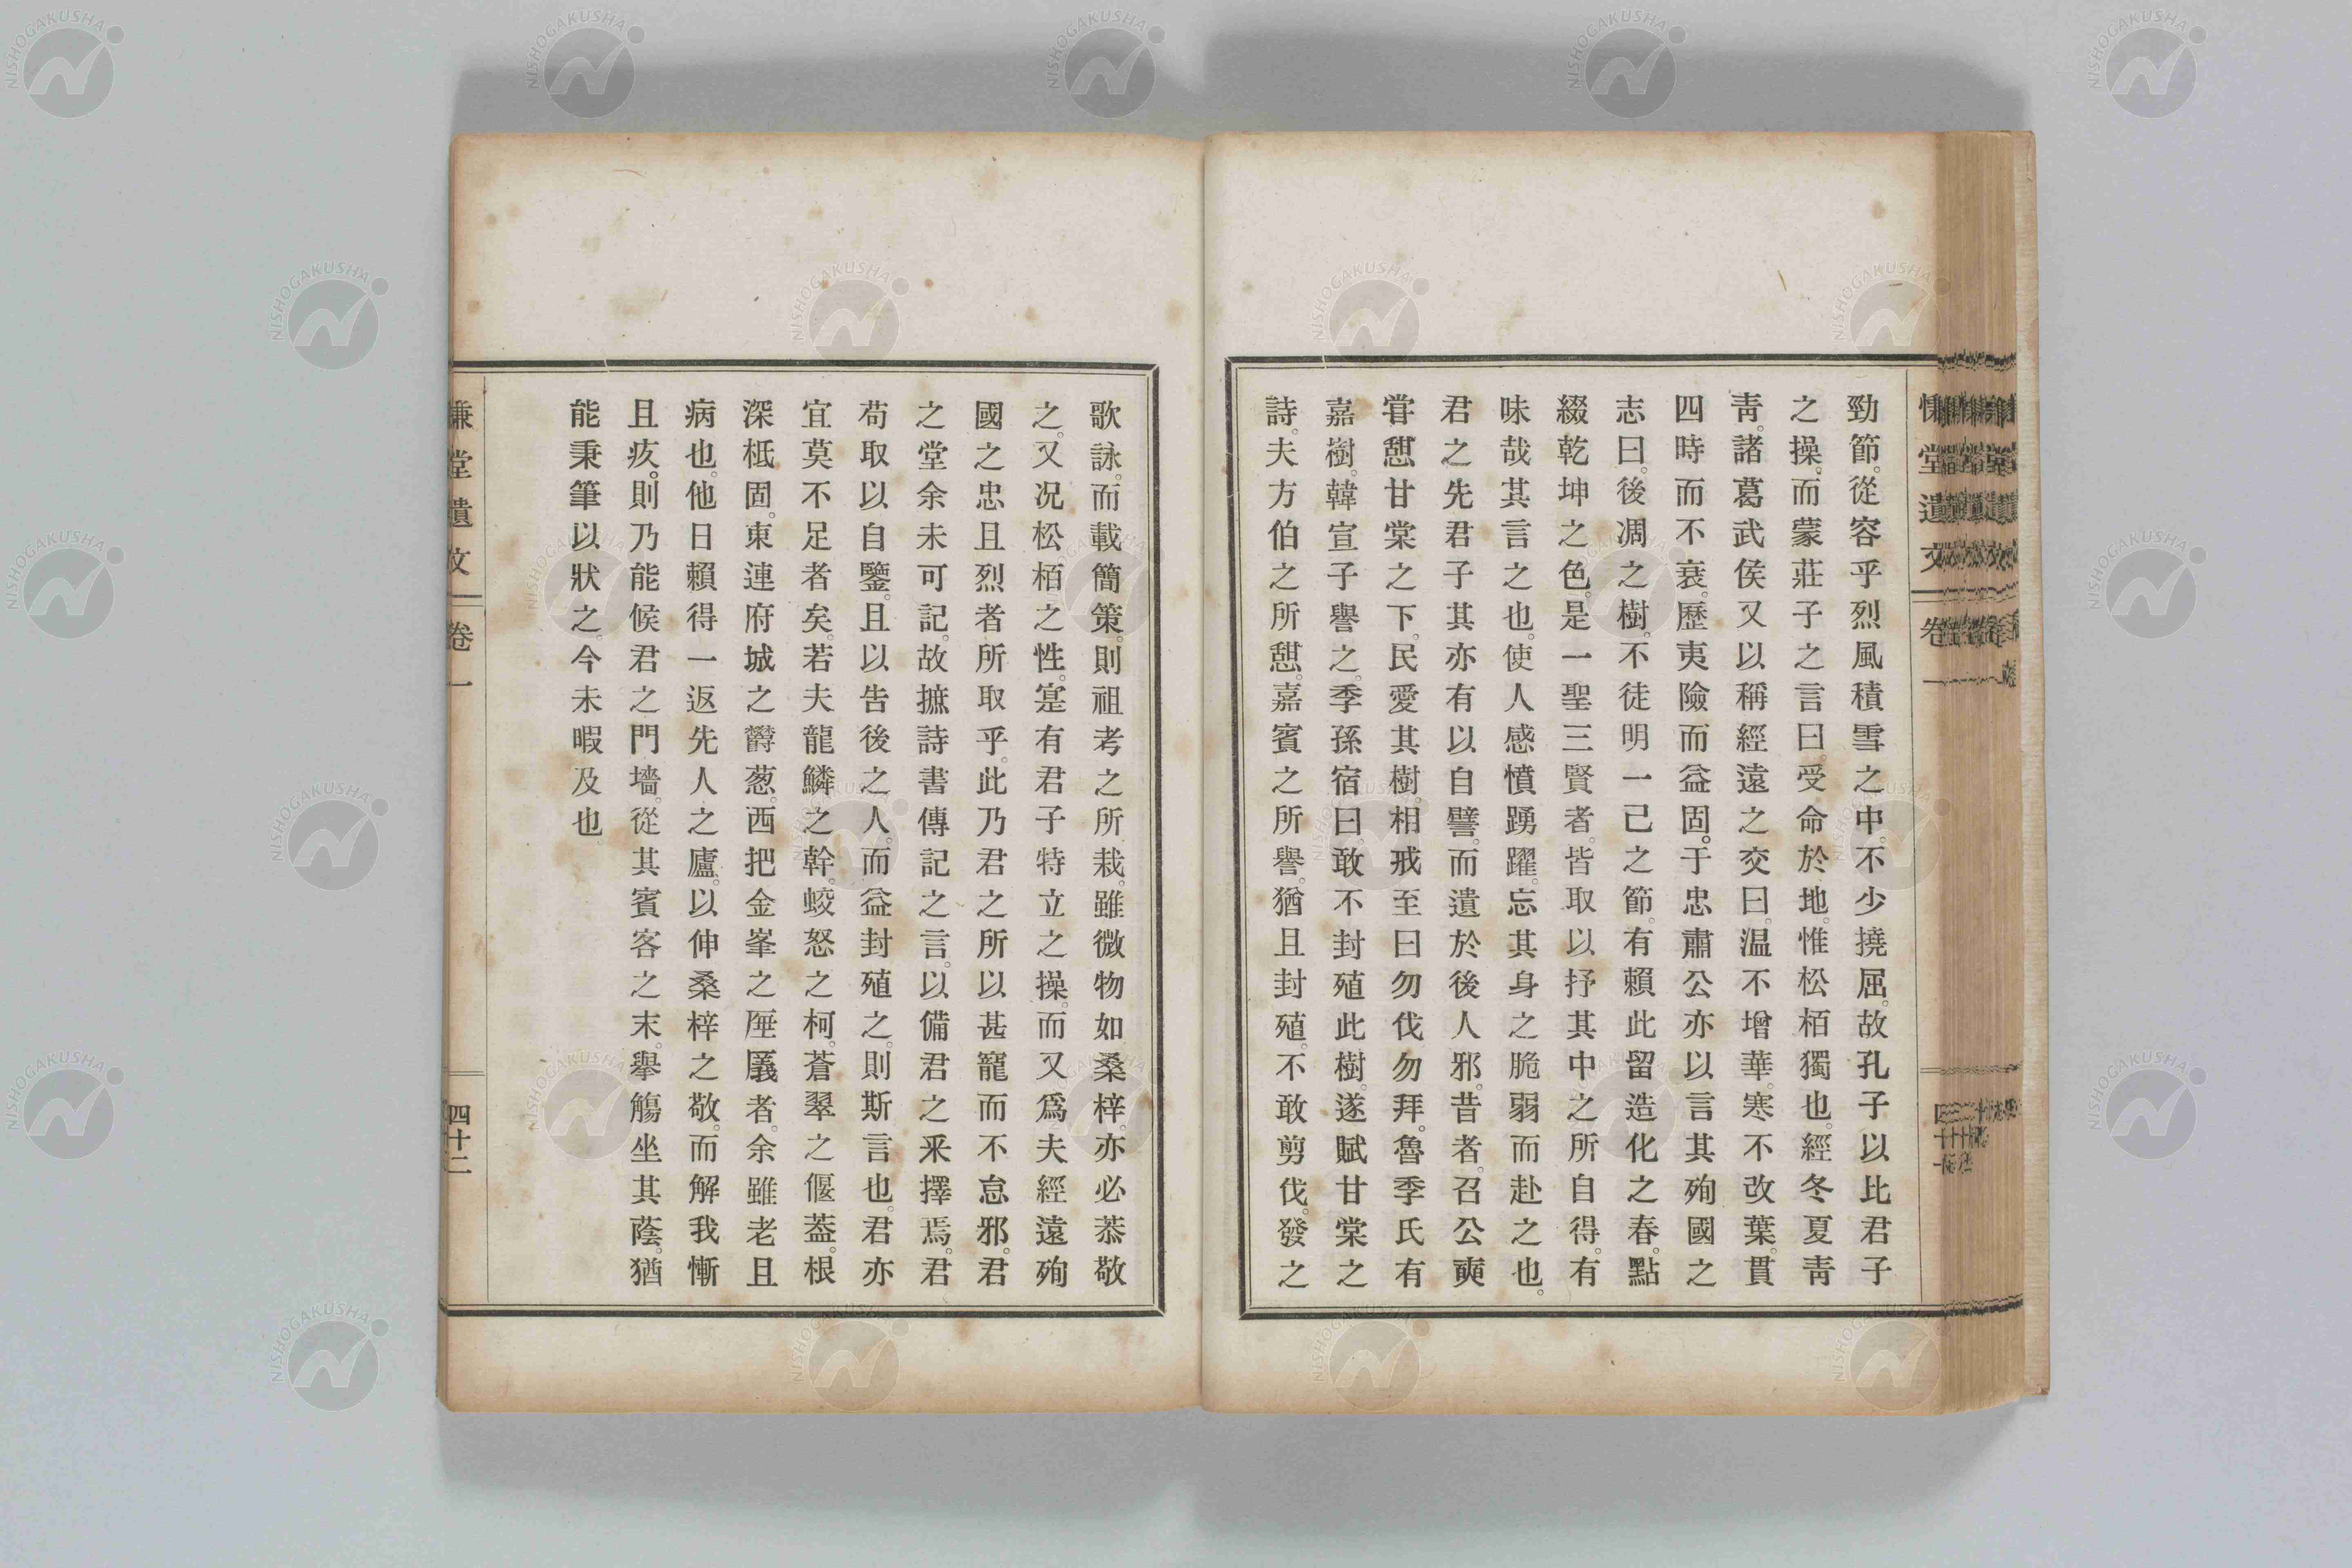 勁節。從容乎烈風積雪之中。不少撓屈。故孔子以比君子
之操。而蒙莊子之言曰。受命於地。惟松栢獨也。經冬夏靑
靑。諸葛武侯又以稱經遠之交曰。温不增華。寒不改葉。貫
四時而不衰。歷夷險而益固。于忠肅公亦以言其殉國之
志曰。後凋之樹。不徒明一己之節。有賴此留造化之春。點
綴乾坤之色。是一聖三賢者。皆取以抒其中之所自得。有
味哉其言之也。使人感憤踴躍。忘其身之脆弱而赴之也。
君之先君子其亦有以自譬。而遺於後人邪。昔者。召公奭
甞憇甘棠之下。民愛其樹。相戒至曰勿伐勿拜。魯季氏有
嘉樹。韓宣子譽之。季孫宿曰。敢不封殖此樹。遂賦甘棠之
詩。夫方伯之所憇。嘉賓之所譽。猶且封殖。不敢剪伐。發之
歌詠。而載簡策。則祖考之所栽。雖微物如桑梓。亦必恭敬
之。又况松栢之性。寔有君子特立之操。而又爲夫經遠殉
國之忠且烈者所取乎。此乃君之所以甚寵而不怠邪。君
之堂余未可記。故摭詩書傳記之言。以備君之釆擇焉。君
苟取以自鑒。且以告後之人。而益封殖之。則斯言也。君亦
宜莫不足者矣。若夫龍鱗之幹。蛟怒之柯。蒼翠之偃葢。根
深柢固。東連府城之欝葱。西把金峯之厜㕒者。余雖老且
病也。他日賴得一返先人之廬。以伸桑梓之敬。而解我慚
且疚。則乃能候君之門墻。從其賓客之末。擧觴坐其蔭。猶
能秉筆以狀之。今未暇及也。
慊堂遺文
卷一
四十二